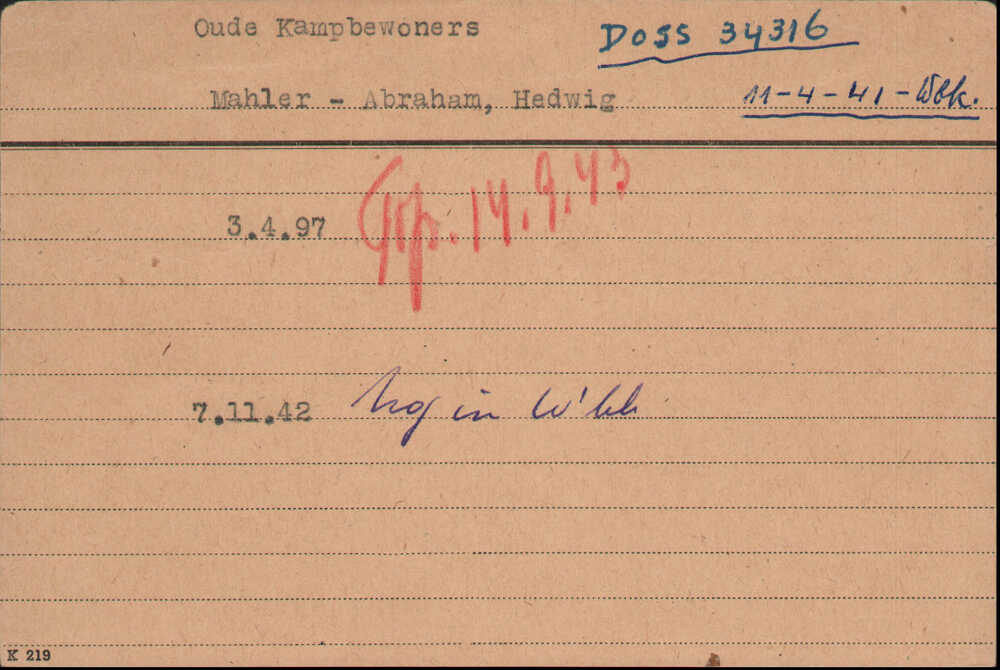 Oude Kampbewoners
DOSS 34316
Mahler - Abraham, Hedwig
11-4-41-Wbk.
14.9.43
3.4.97
7.11.42 nog in W'bk
K 219